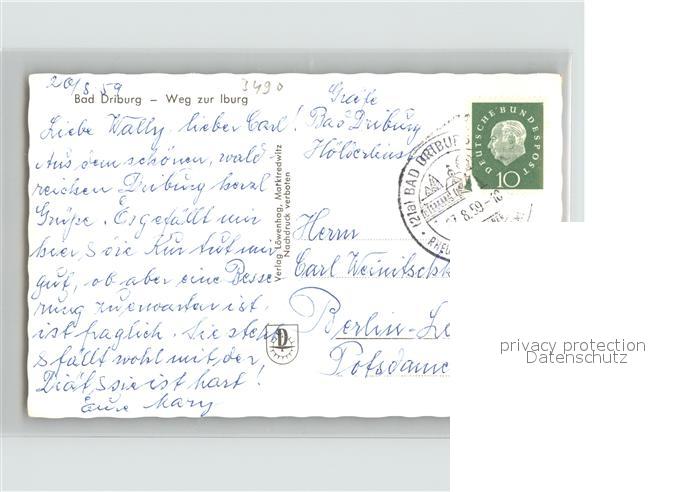 20/8.59
3490
Bad Driburg – Weg zur Iburg
Liebe Wally, lieber Carl!
Aus dem schönen, wald-
reichen Driburg herzl
Grüße. Es gefällt mir
hier, die Kur tut mir
gut, ob aber eine Besse
rung zu erwarten ist,
ist fraglich. Sie
fällt wohl mit der
Diät, sie ist hart!
Eure Mary
Verlag Löwenhag, Marktredwitz
Nachdruck verboten
Bad Driburg
Herrn
Carl
Berlin-
DEUTSCHE BUNDESPOST
10
(21a) BAD DRIBURG
8.59-10
RHEU
privacy protection
Datenschutz